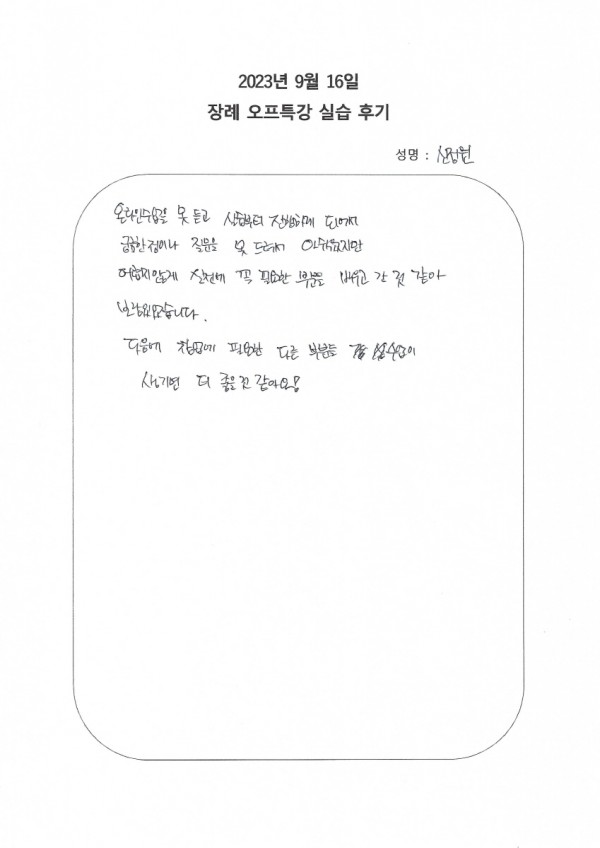 2023년 9월 16일
장례 오프특강 실습 후기
성명 : 신정원
온라인수업을 못 듣고 실습부터 진행하게 되어서
궁금한점이나 질문을 못 드려서 아쉬웠지만
어렵지않게 실전에 꼭 필요한 부분을 배우고 간 것 같아
보람있었습니다.
다음에 창업에 필요한 다른 부분들 실습수업이
생기면 더 좋을 것 같아요!